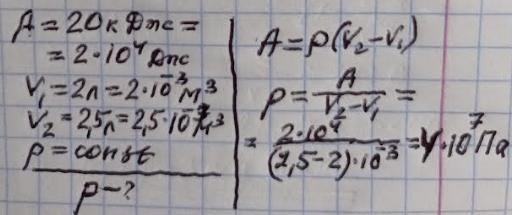 A = 20кДж =
= 2·10⁴ Дж
V₁ = 2л = 2·10⁻³ м³
V₂ = 2,5л = 2,5·10⁻³ м³
p = const
p – ?
A = p(V₂–V₁)
p = A/(V₂–V₁) =
= 2·10⁴/((2,5–2)·10⁻³) = 4·10⁷ Па